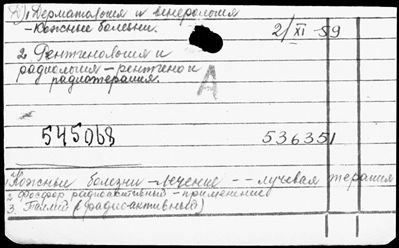 1. Дерматология и венерология
– Кожные болезни. 2/XI – 59
2. Рентгенология и
радиология – рентгено и
радиотерапия.
А
545068 536351
1 Кожные болезни – лечение – – лучевая терапия
2 Фосфор радиоактивный – применение
3. Таллий (радиоактивный)